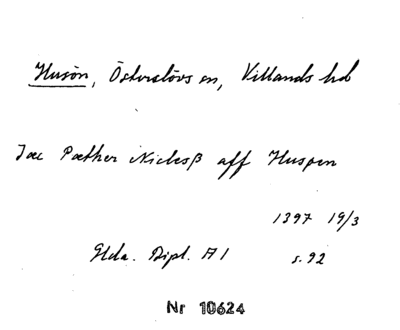 Husön, Österslövs sn, Villands hd
Jac Pæther Niclesß aff Huspen
1397 19/3
Glda. Dipl. A I s. 92
Nr 10624